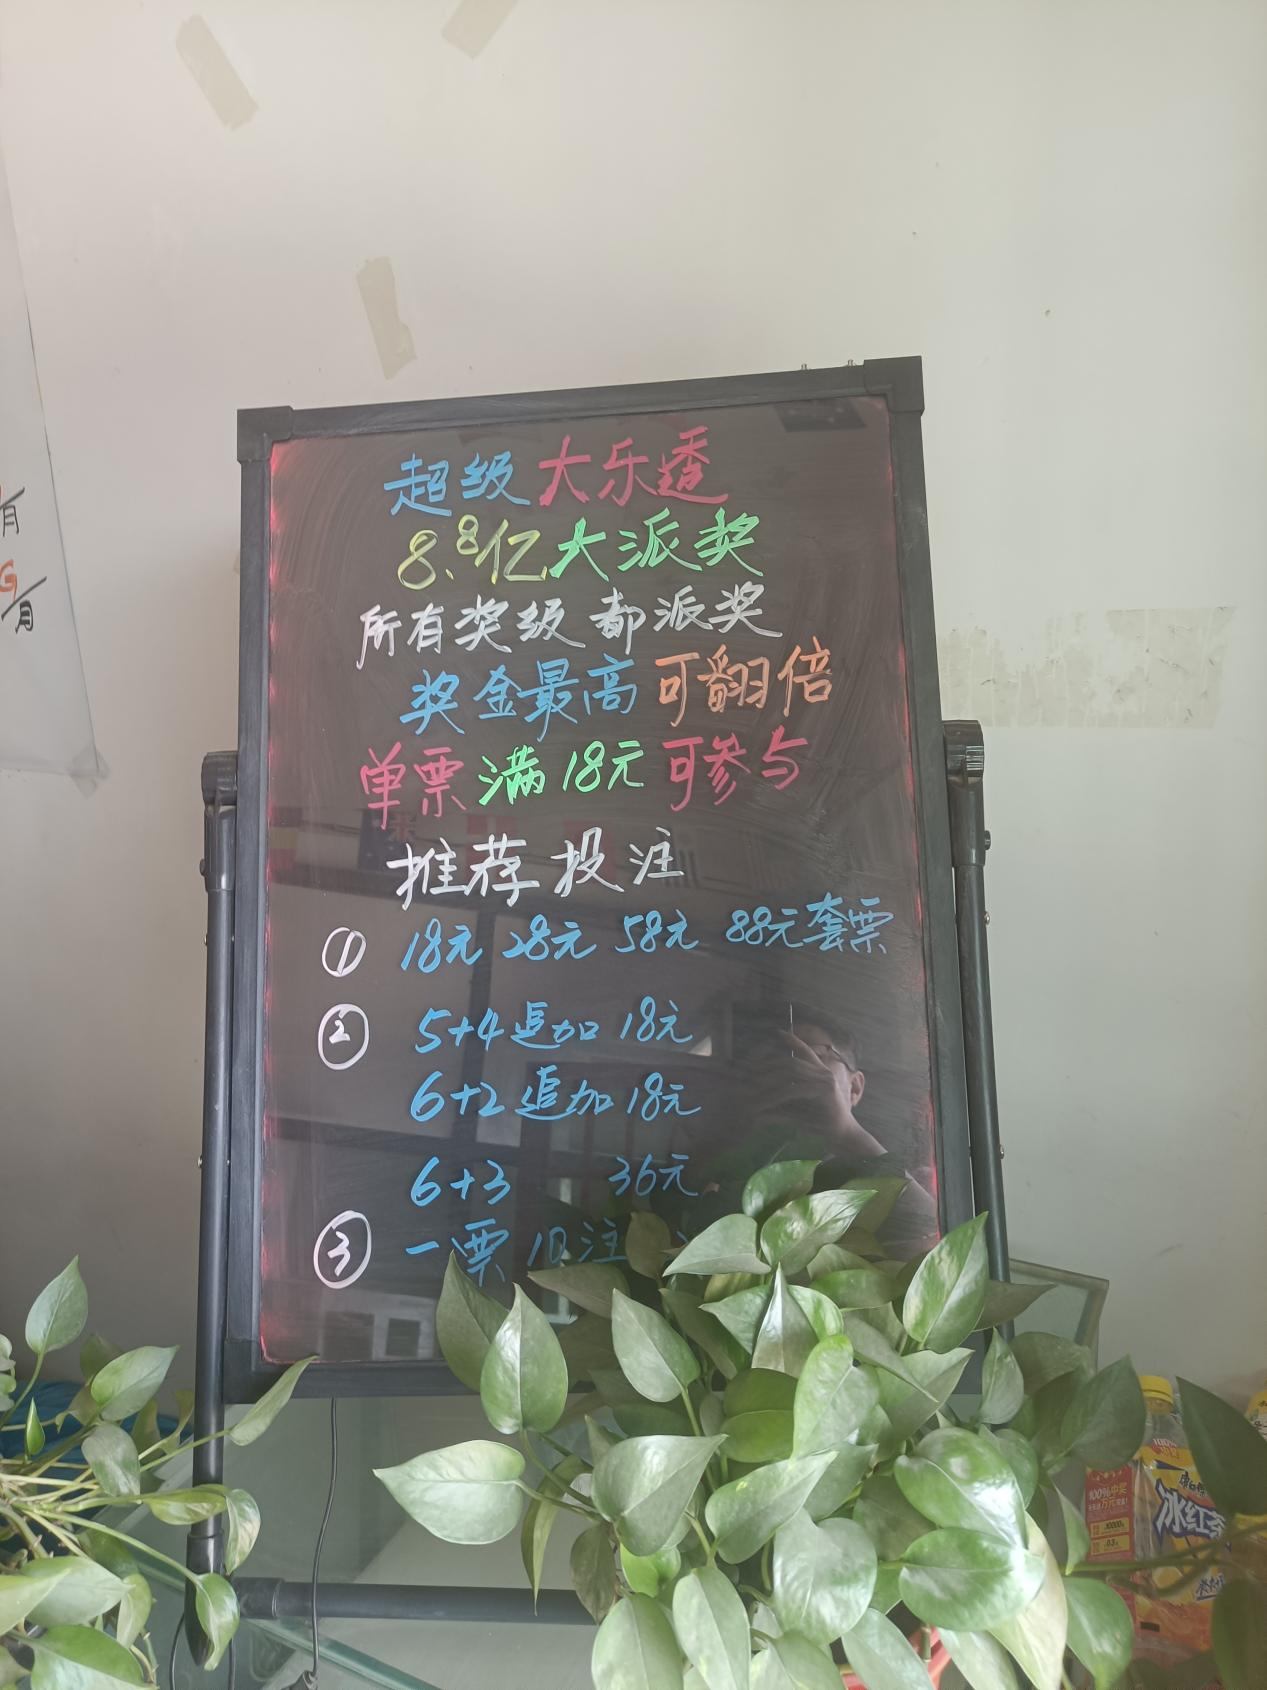 超级大乐透
8.8亿大派奖
所有奖级都派奖
奖金最高可翻倍
单票满18元可参与
推荐投注
① 18元 28元 58元 88元套票
② 5+4追加 18元
6+2追加 18元
6+3 36元
③ 一票10注
有
G/月
100%
100%中奖
冰红茶